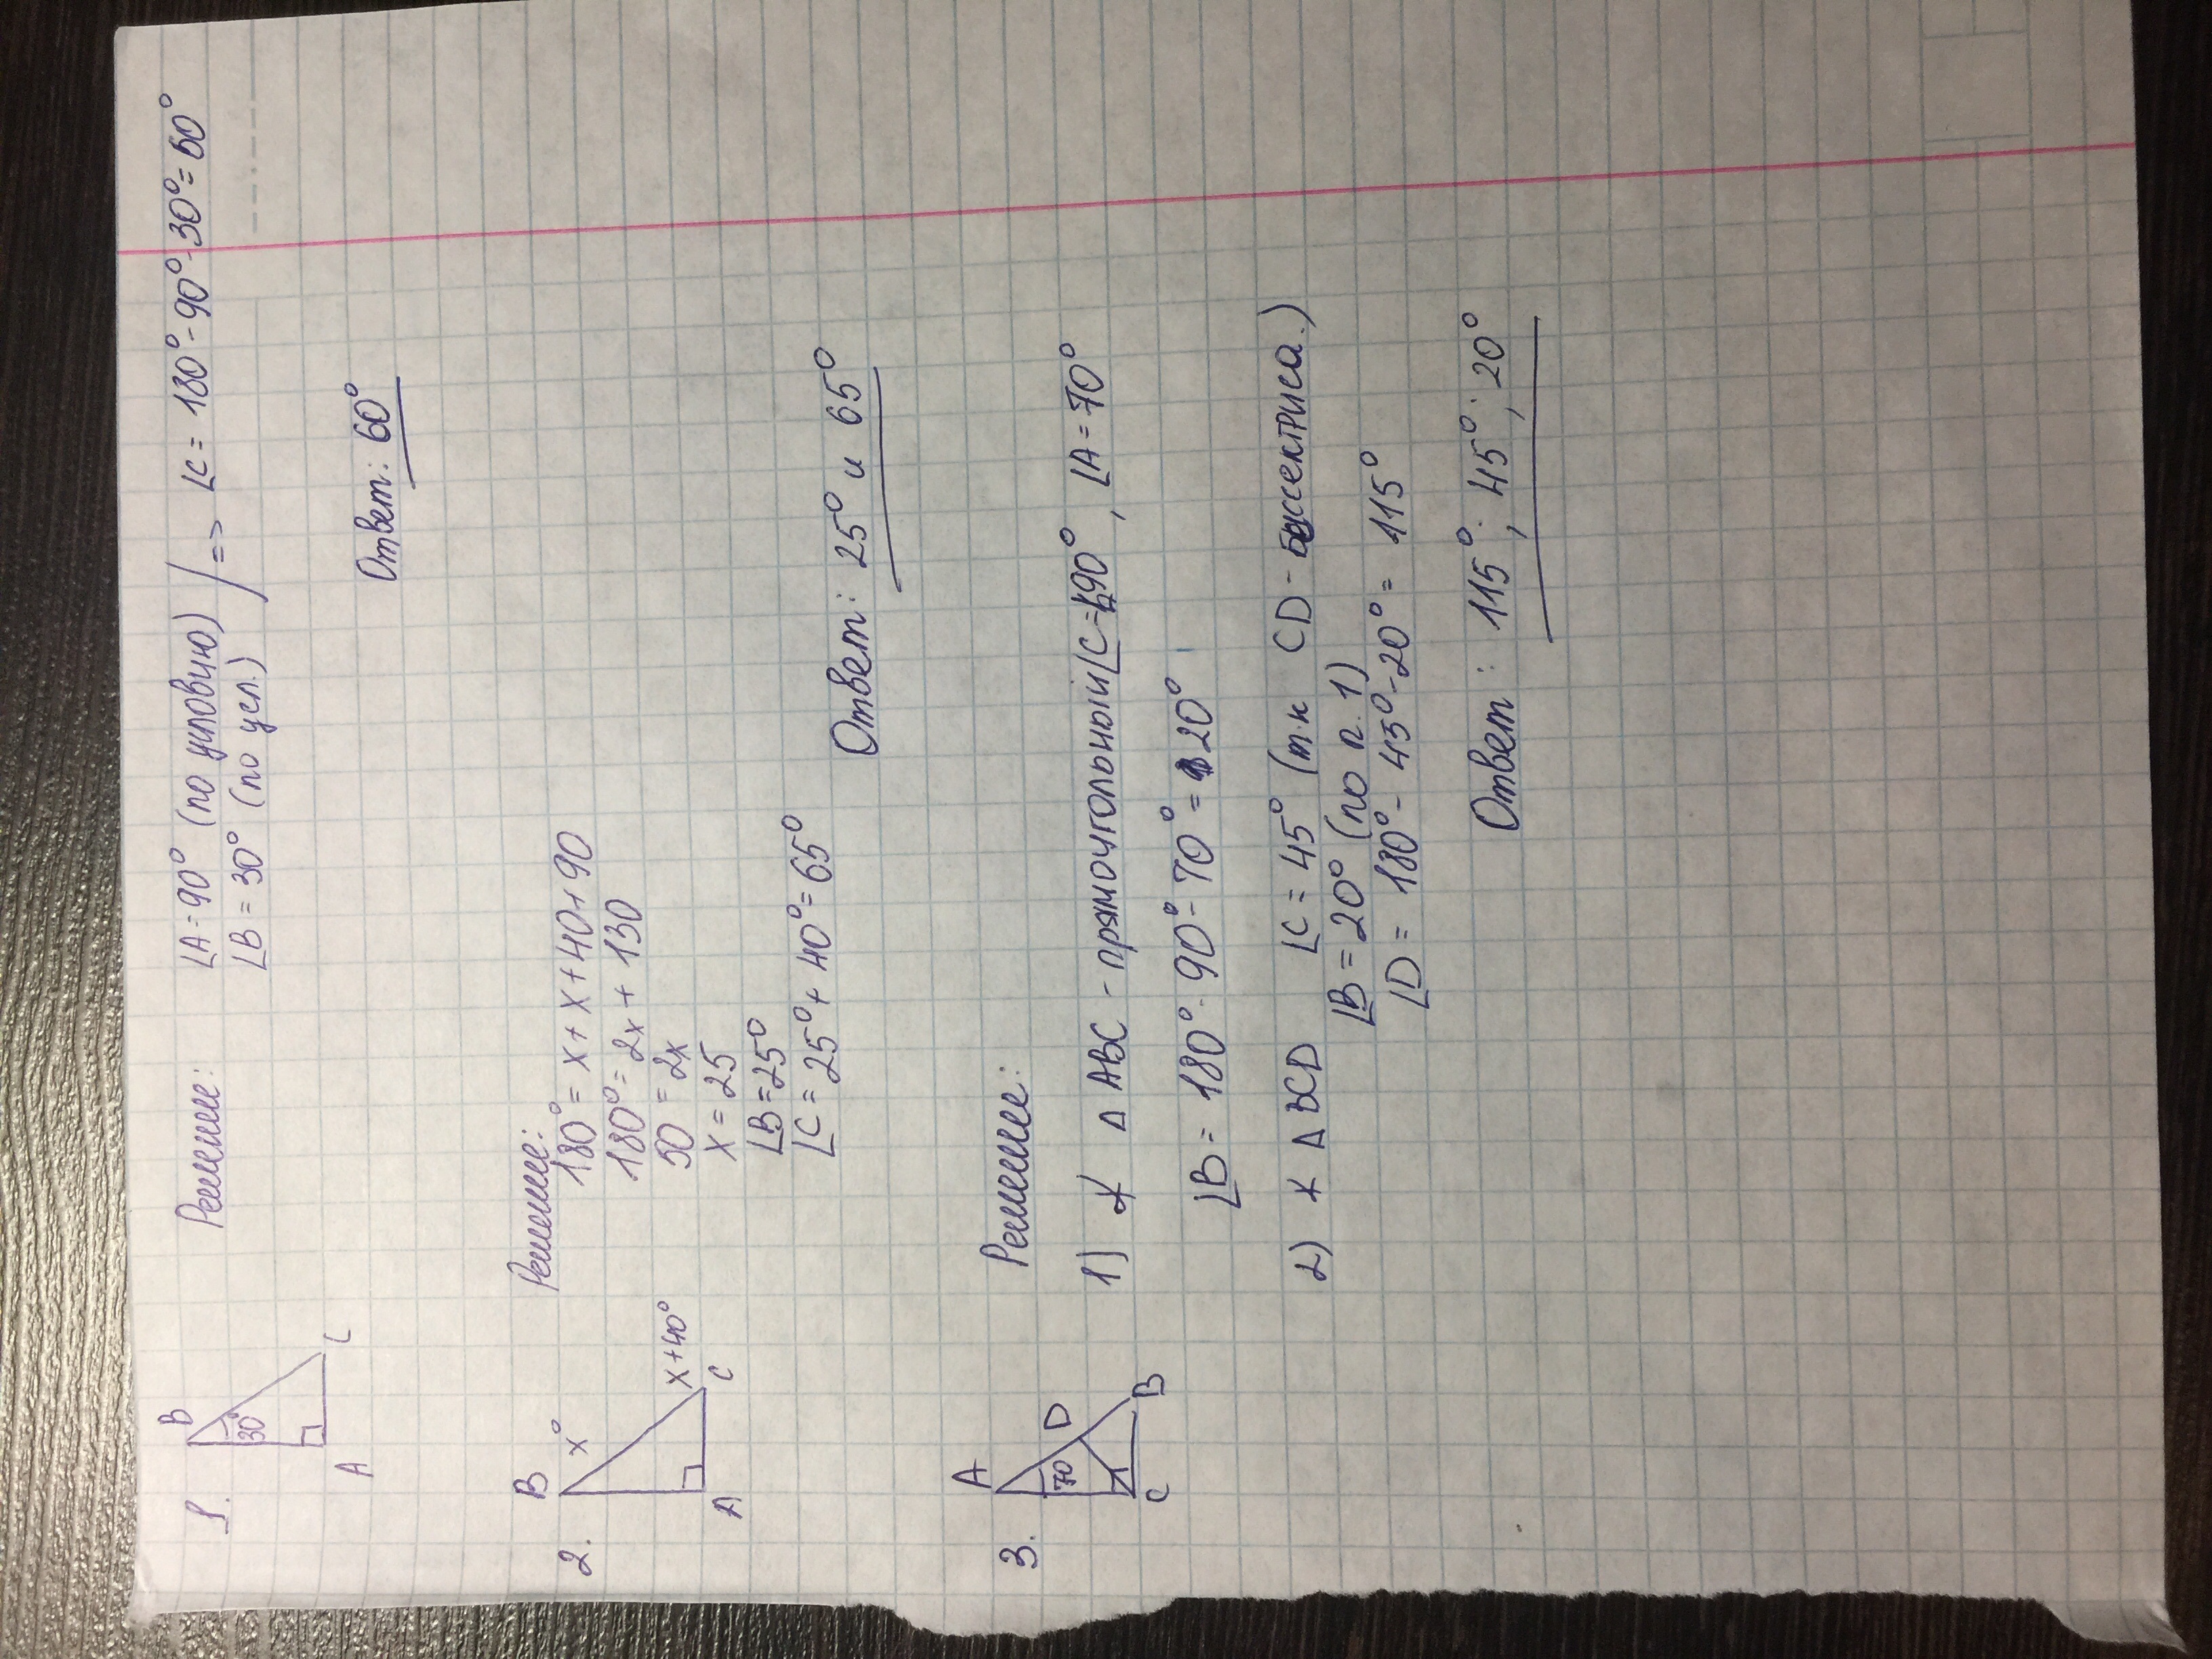 1.
B
30°
A
C
Решение:
∟A = 90° (по условию)
∟B = 30° (по усл.)
=> ∟C = 180° - 90° - 30° = 60°
Ответ: 60°
2.
B
x°
x+40°
A
C
Решение:
180° = x + x + 40 + 90
180° = 2x + 130
50 = 2x
x = 25
∟B = 25°
∟C = 25° + 40° = 65°
Ответ: 25° и 65°
3.
A
70
D
C
B
Решение:
1) ∆ ABC - прямоугольный ∟C = 90°, ∟A = 70°
∟B = 180° - 90° - 70° = 20°
2) ∆ BCD ∟C = 45° (т.к CD - биссектриса.)
∟B = 20° (по п. 1)
∟D = 180° - 45° - 20° = 115°
Ответ: 115°; 45°; 20°